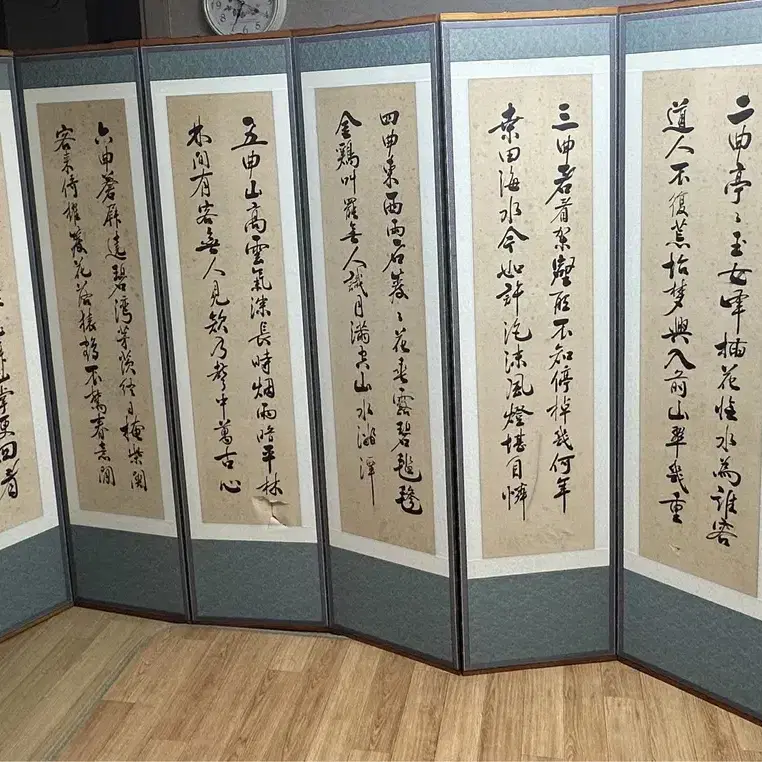 二曲亭〻玉女峰插花臨水為誰容
道人不復荒坮夢興入前山翠幾重
三曲君看架壑船不知停棹幾何年
桑田海水今如許泡沫風燈堪自憐
四曲東西兩石巖〻花垂露碧毿
金鷄叫罷無人識月滿空山水滿潭
五曲山高雲氣深長時烟雨暗平林
林間有客無人見欸乃聲中萬古心
六曲蒼屏遶碧灣茅茨終日掩柴關
客來倚櫂巖花落猿鶴不驚春意閒
掌更回看